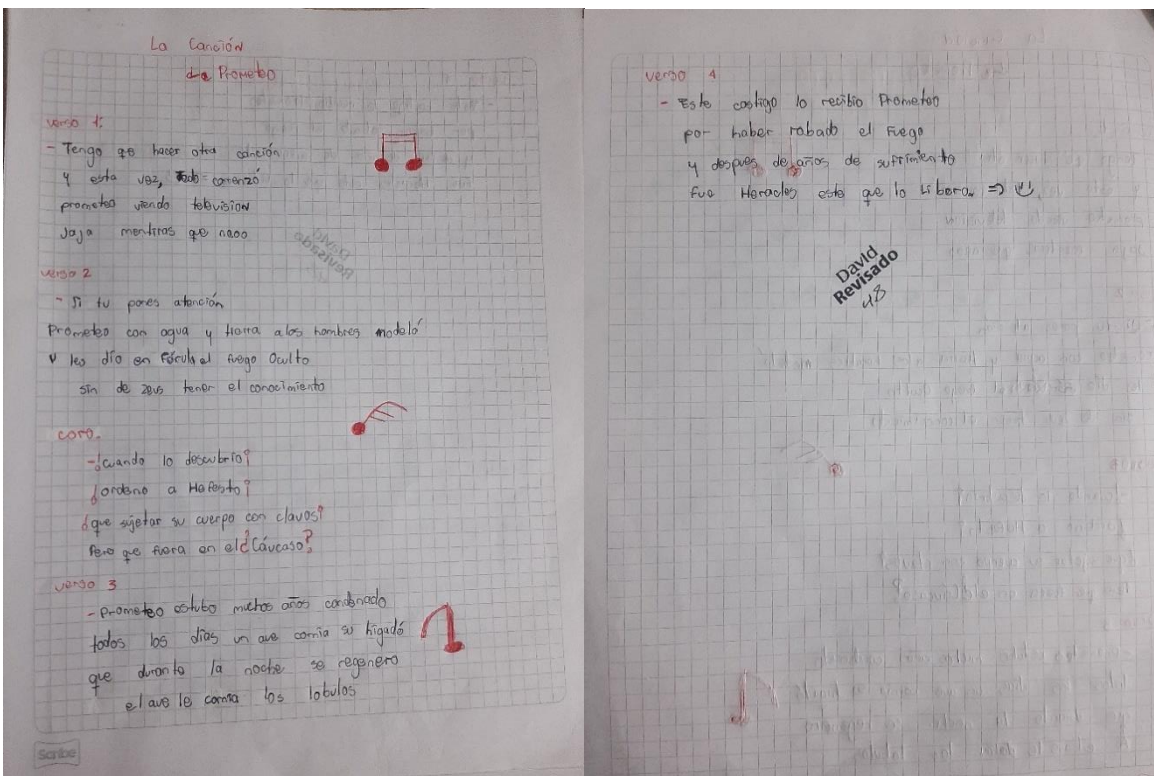 La Canción
de Prometeo
verso 1:
- Tengo qe hacer otra canción
y esta vez, todo comenzó
prometeo viendo television
Jaja mentiras qe nooo
verso 2
- Si tu pones atención
Prometeo con agua y tierra a los hombres modeló
Y les dio en férula el fuego Oculto
sin de zeus tener el conocimiento
coro.
- ¿cuando lo descubrio?
¿ordeno a Hefesto?
¿que sujetar su cuerpo con clavos?
Pero qe fuera en el ¿Cáucaso?
verso 3
- Prometeo estubo muchos años condenado
todos los días un ave comia su higadó
que durante la noche se regenero
el ave le comia los lobulos
Scribe
verso 4
- Este castigo lo recibio Prometeo
por haber robado el Fuego
y despues de años de sufrimiento
fue Heracles este que lo libera. =>
David
Revisado
48